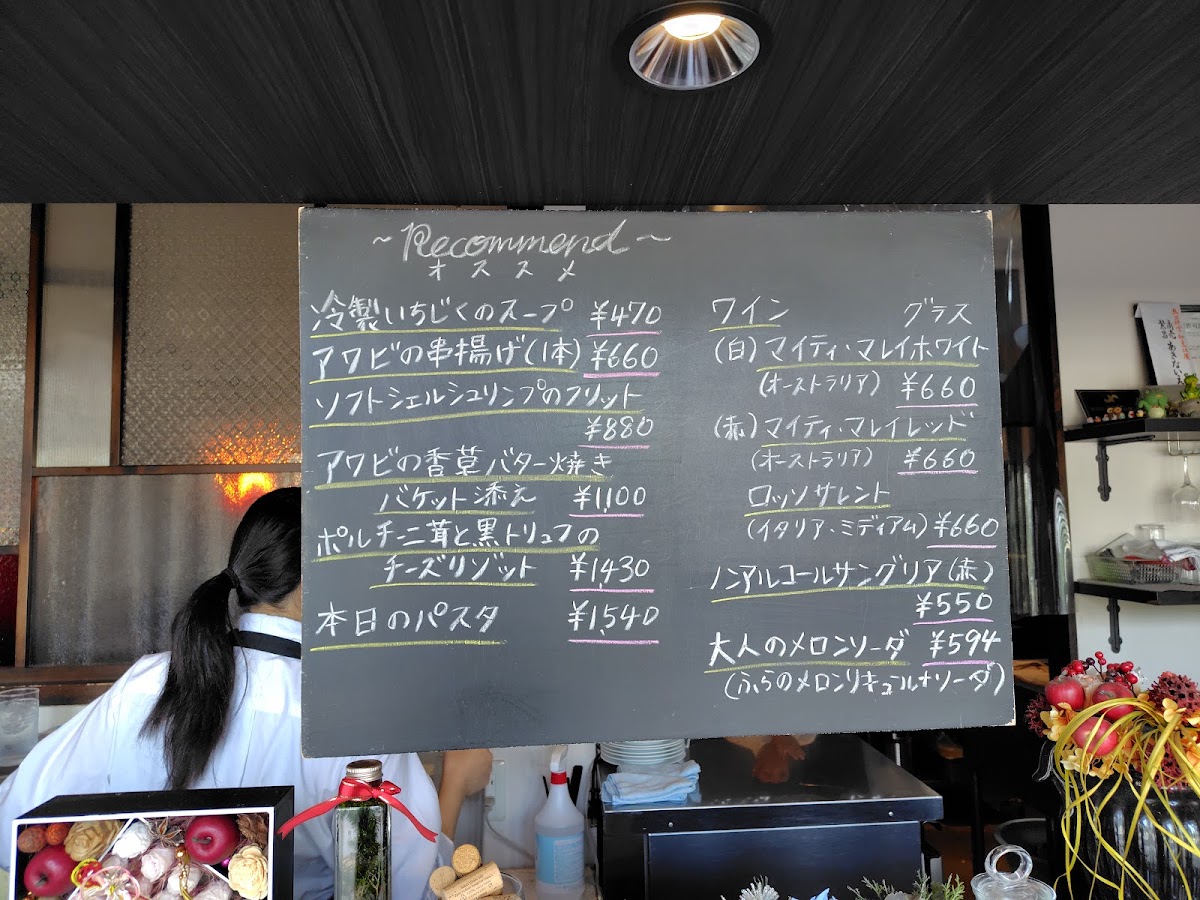 ~Recommend~
オススメ
冷製いちじくのスープ ¥470
アワビの串揚げ(1本) ¥660
ソフトシェルシュリンプのフリット
¥880
アワビの香草バター焼き
バケット添え ¥1,100
ポルチーニ茸と黒トリュフの
チーズリゾット ¥1,430
本日のパスタ ¥1,540
ワイン グラス
(白)マイティ・マレイホワイト
(オーストラリア) ¥660
(赤)マイティ・マレイレッド
(オーストラリア) ¥660
ロッソサレント
(イタリア・ミディアム) ¥660
ノンアルコールサングリア(赤)
¥550
大人のメロンソーダ ¥594
(ふらのメロンリキュール+ソーダ)